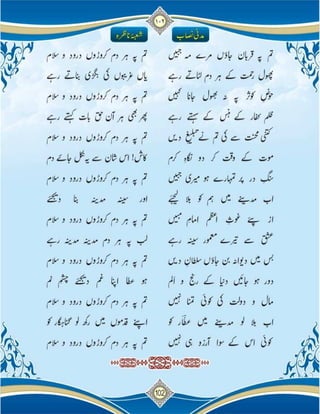 مدنی نصاب
۱۰۲
شعبۂ ناظرہ
تم پہ قربان جاؤں مرے مہ جبیں
تم پہ ہر دم کروڑوں درود و سلام
پھول رحمت کے ہر دم لٹاتے رہے
یاں غریبوں کی بگڑی بناتے رہے
حوضِ کوثر پہ نہ بھول جانا کہیں
تم پہ ہر دم کروڑوں درود و سلام
ظلم کفار کے ہنس کے سہتے رہے
پھر بھی ہر آن حق بات کہتے رہے
کتنی محنت سے کی تم نے تبلیغِ دیں
تم پہ ہر دم کروڑوں درود و سلام
موت کے وقت کر دو نگاہِ کرم
کاش! اس شان سے یہ نکل جائے دم
سنگِ در پر تمہارے ہو میری جبیں
تم پہ ہر دم کروڑوں درود و سلام
اب مدینے میں ہم کو بلا لیجئے
اور سینہ مدینہ بنا دیجئے
از پئے غوثِ اعظم امامِ مبیں
تم پہ ہر دم کروڑوں درود و سلام
عشق سے تیرے معمور سینہ رہے
لب پہ ہر دم مدینہ مدینہ رہے
بس میں دیوانہ بن جاؤں سلطانِ دیں
تم پہ ہر دم کروڑوں درود و سلام
دور ہو جائیں دنیا کے رنج و الم
ہو عطا اپنا غم دیجئے چشمِ نم
مال و دولت کی کوئی تمنا نہیں
تم پہ ہر دم کروڑوں درود و سلام
اب بلا لو مدینے میں عطار کو
اپنے قدموں میں رکھ لو گنہگار کو
کوئی اس کے سوا آرزو ہی نہیں
تم پہ ہر دم کروڑوں درود و سلام
102